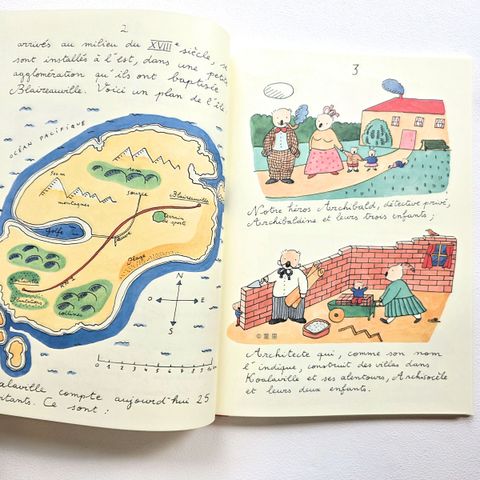 2
arrivés au milieu du XVIIIe siècle, se
sont installés à l'est, dans une petite
agglomération qu'ils ont baptisée
Blaireauville. Voici un plan de l'île
OCÉAN PACIFIQUE
montagnes
source
Blaireauville
terrain de sports
Golfe
fleuve
plage
collines
N
O
E
S
0
10
Koalaville compte aujourd'hui 25
habitants. Ce sont :
3
Notre héros Archibald, détective privé,
Archibaldine et leurs trois enfants ;
©葉田
Architecte qui, comme son nom
l'indique, construit des villas dans
Koalaville et ses alentours, Archisocle
et leurs deux enfants.